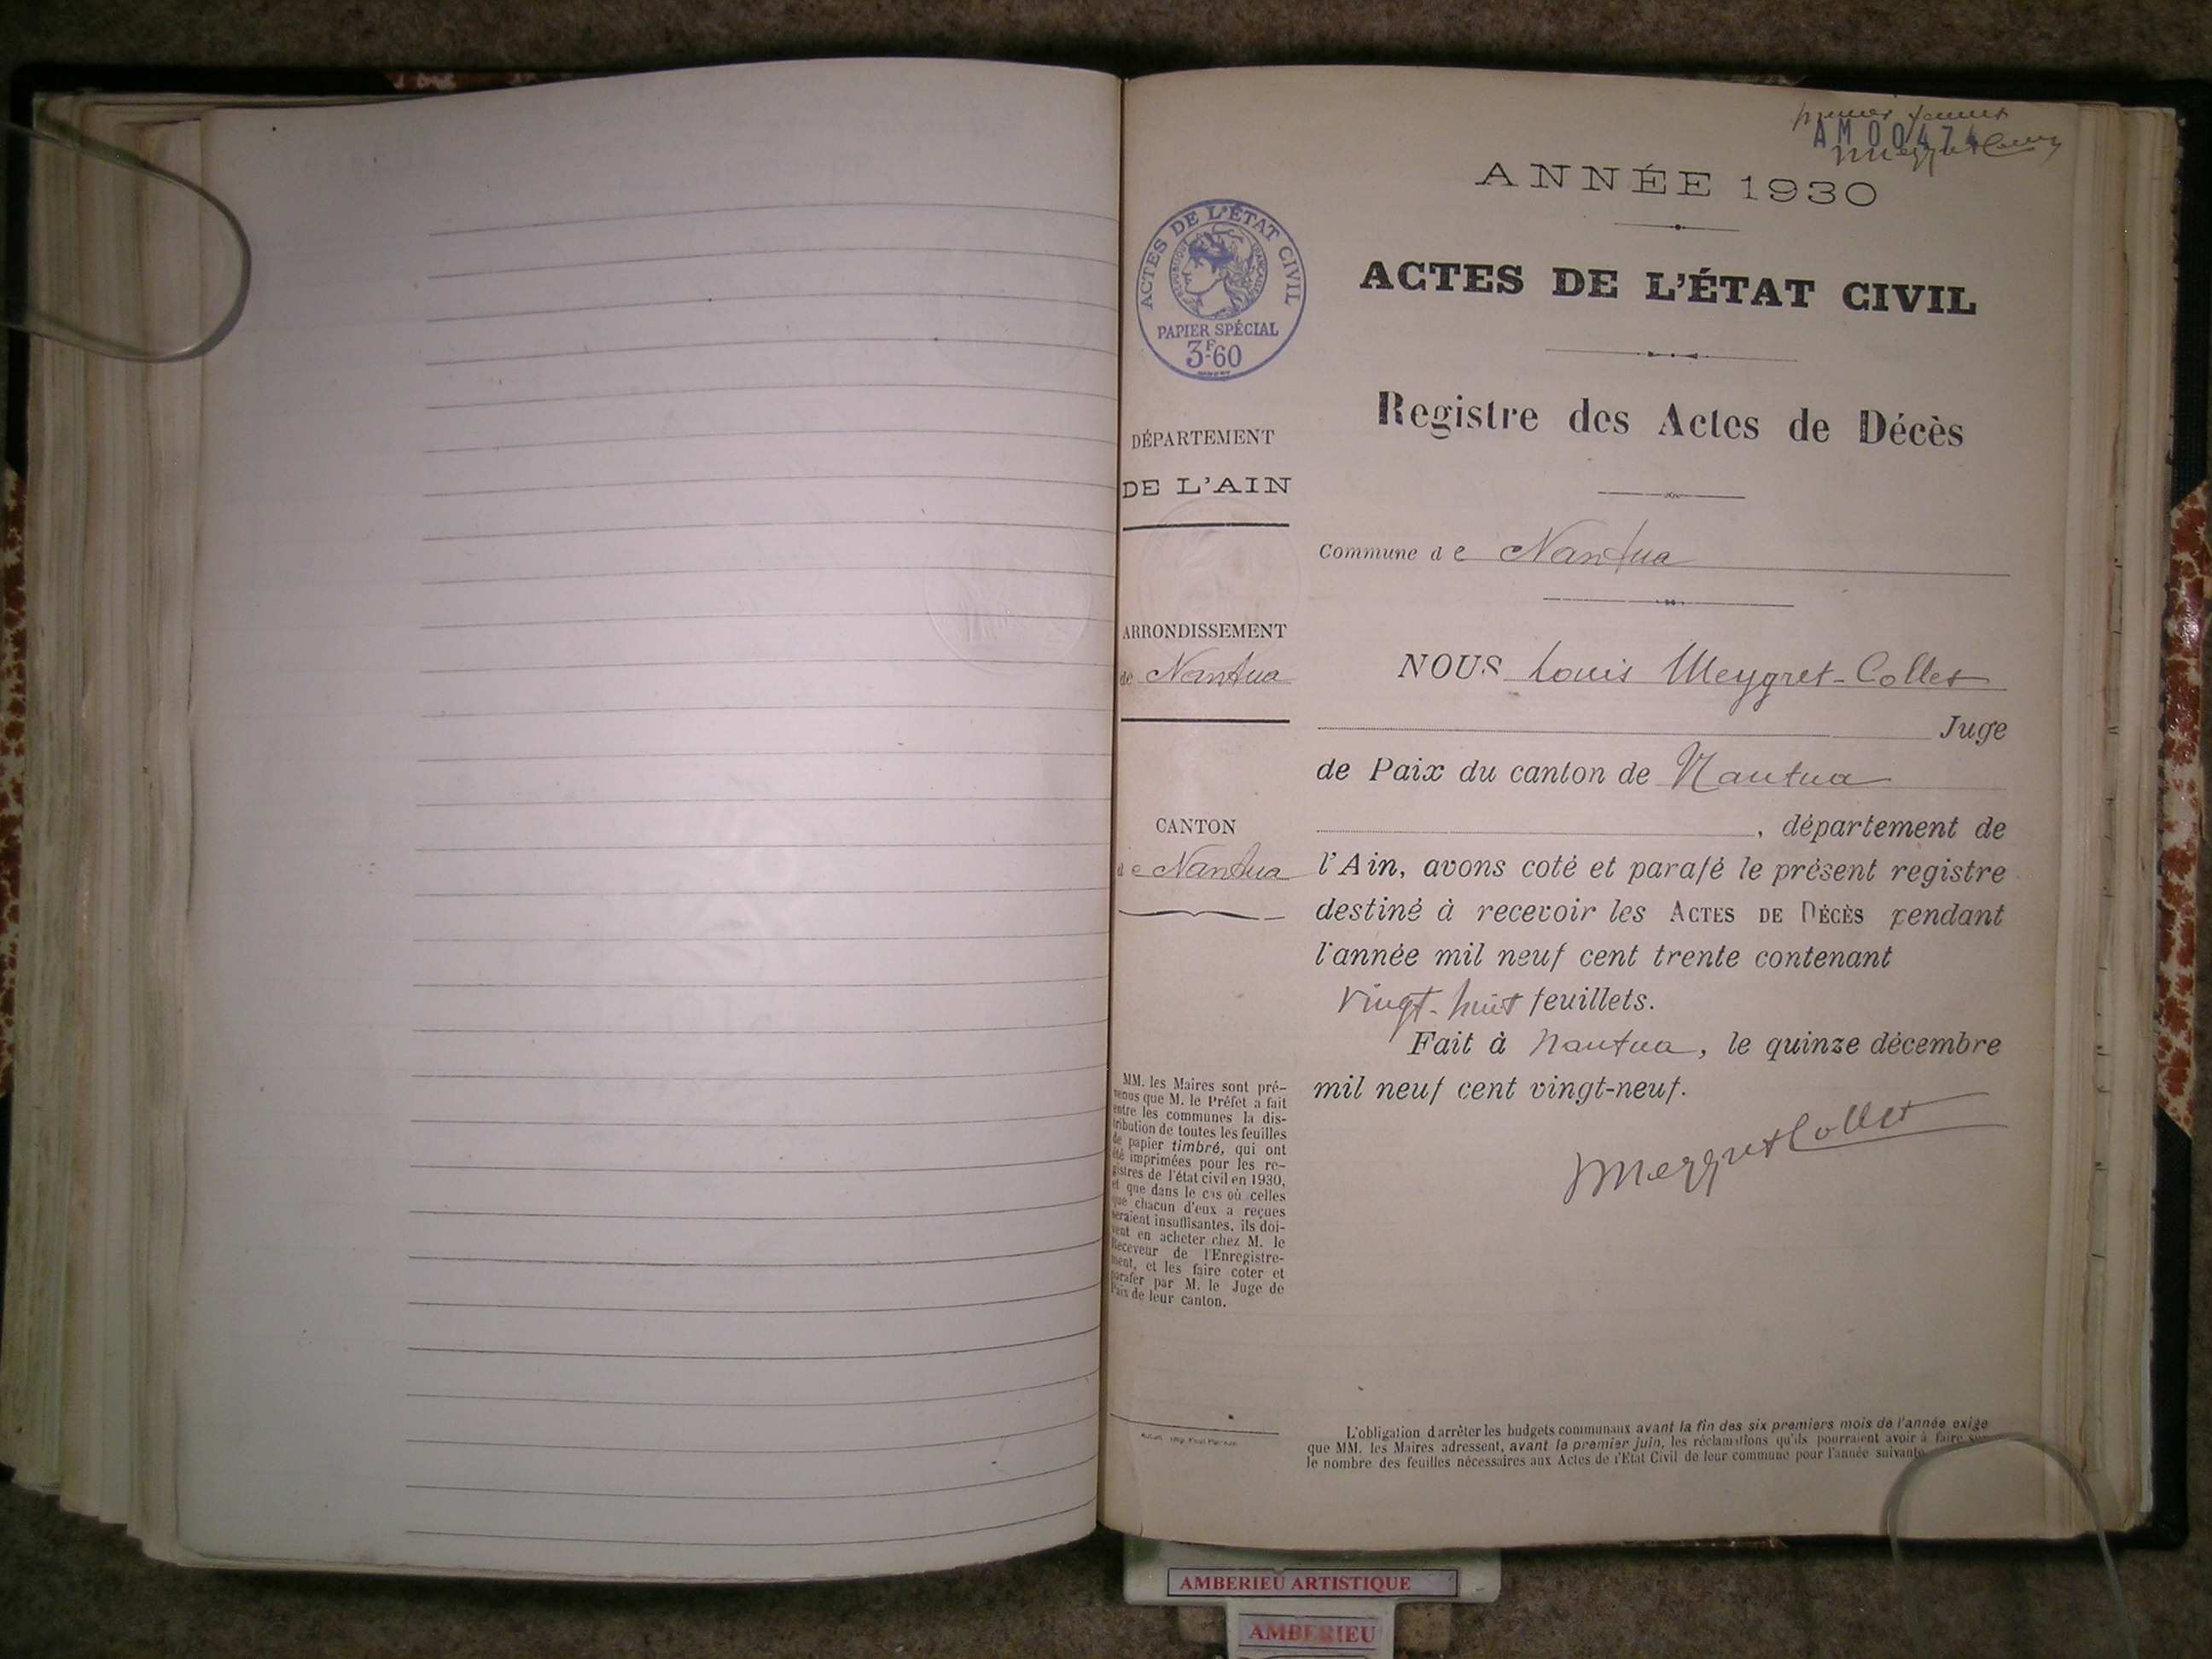 premier feuillet
AM 00474
Meygret Collet
ANNÉE 1930
ACTES DE L'ÉTAT CIVIL
RÉPUBLIQUE FRANÇAISE
PAPIER SPÉCIAL
3F60
ACTES DE L'ÉTAT CIVIL
Registre des Actes de Décès
DÉPARTEMENT
DE L'AIN
Commune de Nantua
ARRONDISSEMENT
de Nantua
NOUS Louis Meygret-Collet
Juge
de Paix du canton de Nantua
CANTON
de Nantua
, département de
l'Ain, avons coté et parafé le présent registre
destiné à recevoir les ACTES DE DÉCÈS pendant
l'année mil neuf cent trente contenant
vingt-huit feuillets.
Fait à Nantua, le quinze décembre
mil neuf cent vingt-neuf.
Meygret Collet
MM. les Maires sont pré-
venus que M. le Préfet a fait
entre les communes la dis-
tribution de toutes les feuilles
de papier timbré, qui ont
été imprimées pour les re-
gistres de l'état civil en 1930,
et que dans le cas où celles
que chacun d'eux a reçues
seraient insuffisantes, ils doi-
vent en acheter chez M. le
Receveur de l'Enregistre-
ment, et les faire coter et
parafer par M. le Juge de
Paix de leur canton.
L'obligation d'arrêter les budgets communaux avant la fin des six premiers mois de l'année exige
que MM. les Maires adressent, avant le premier juin, les réclamations qu'ils pourraient avoir à faire sur
le nombre des feuilles nécessaires aux Actes de l'Etat Civil de leur commune pour l'année suivante
AMBERIEU ARTISTIQUE
AMBERIEU